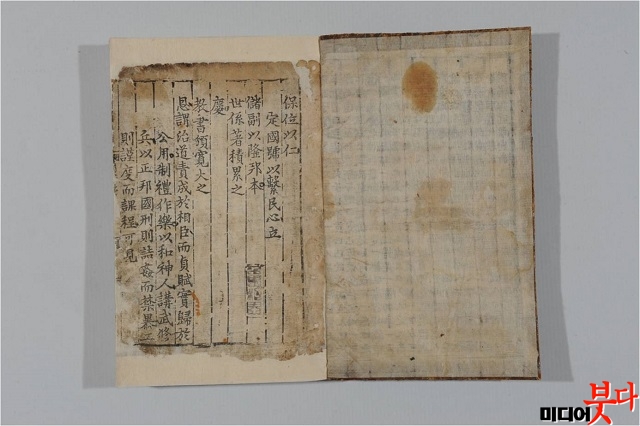 保位以仁
定國號以繫民心立
儲副以隆邦本
世係著積累之
慶
敎書頒寬大之
恩謂治道責成於相臣而貢賦實歸於
公用制禮作樂以和神人講武修
兵以正邦國刑則詰姦而禁暴工
則謹度而課程可見
미디어붓다